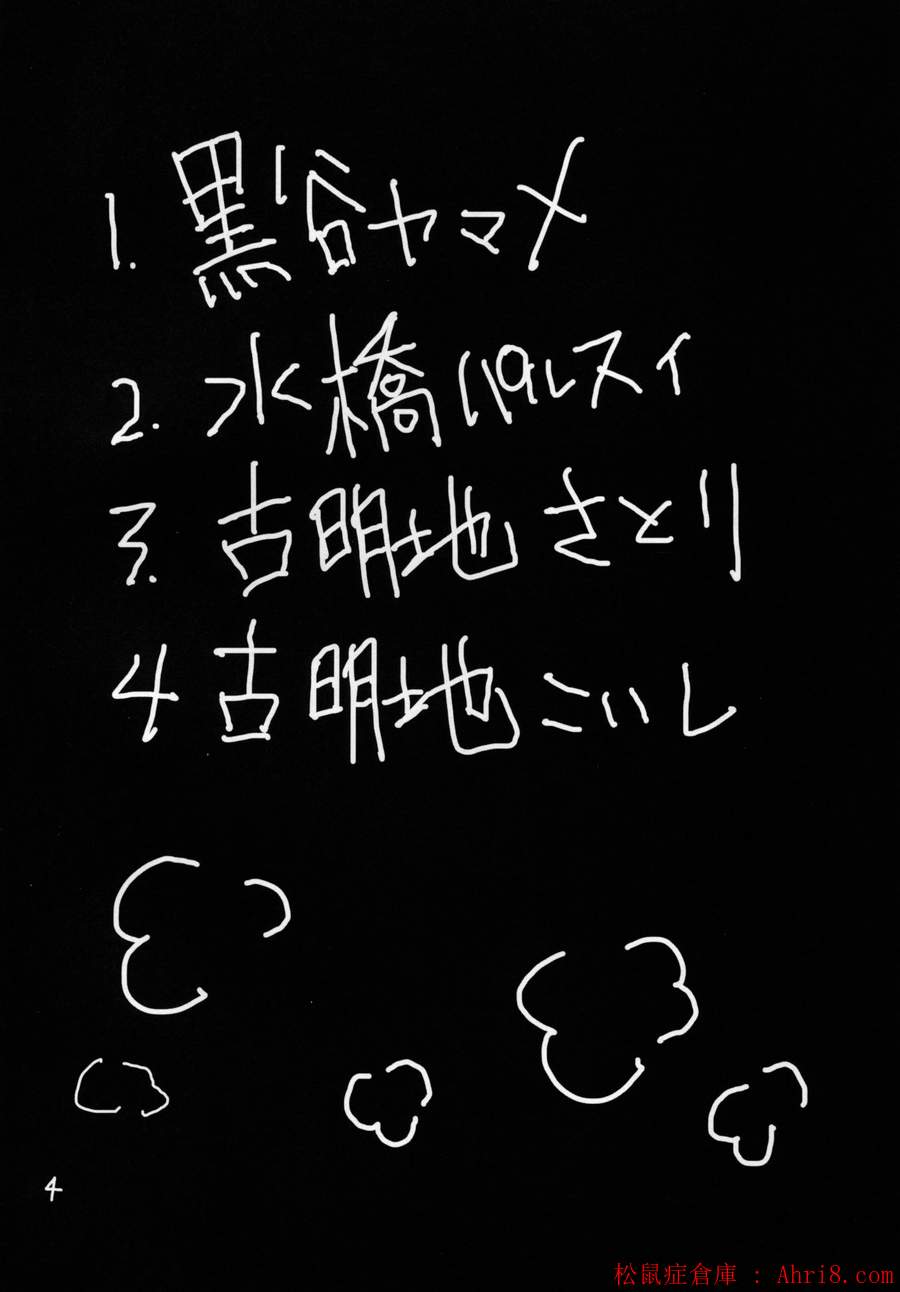 1. 黒谷ヤマメ
2. 水橋パルスィ
3. 古明地さとり
4 古明地こいし
4
松鼠症倉庫 : Ahri8.com